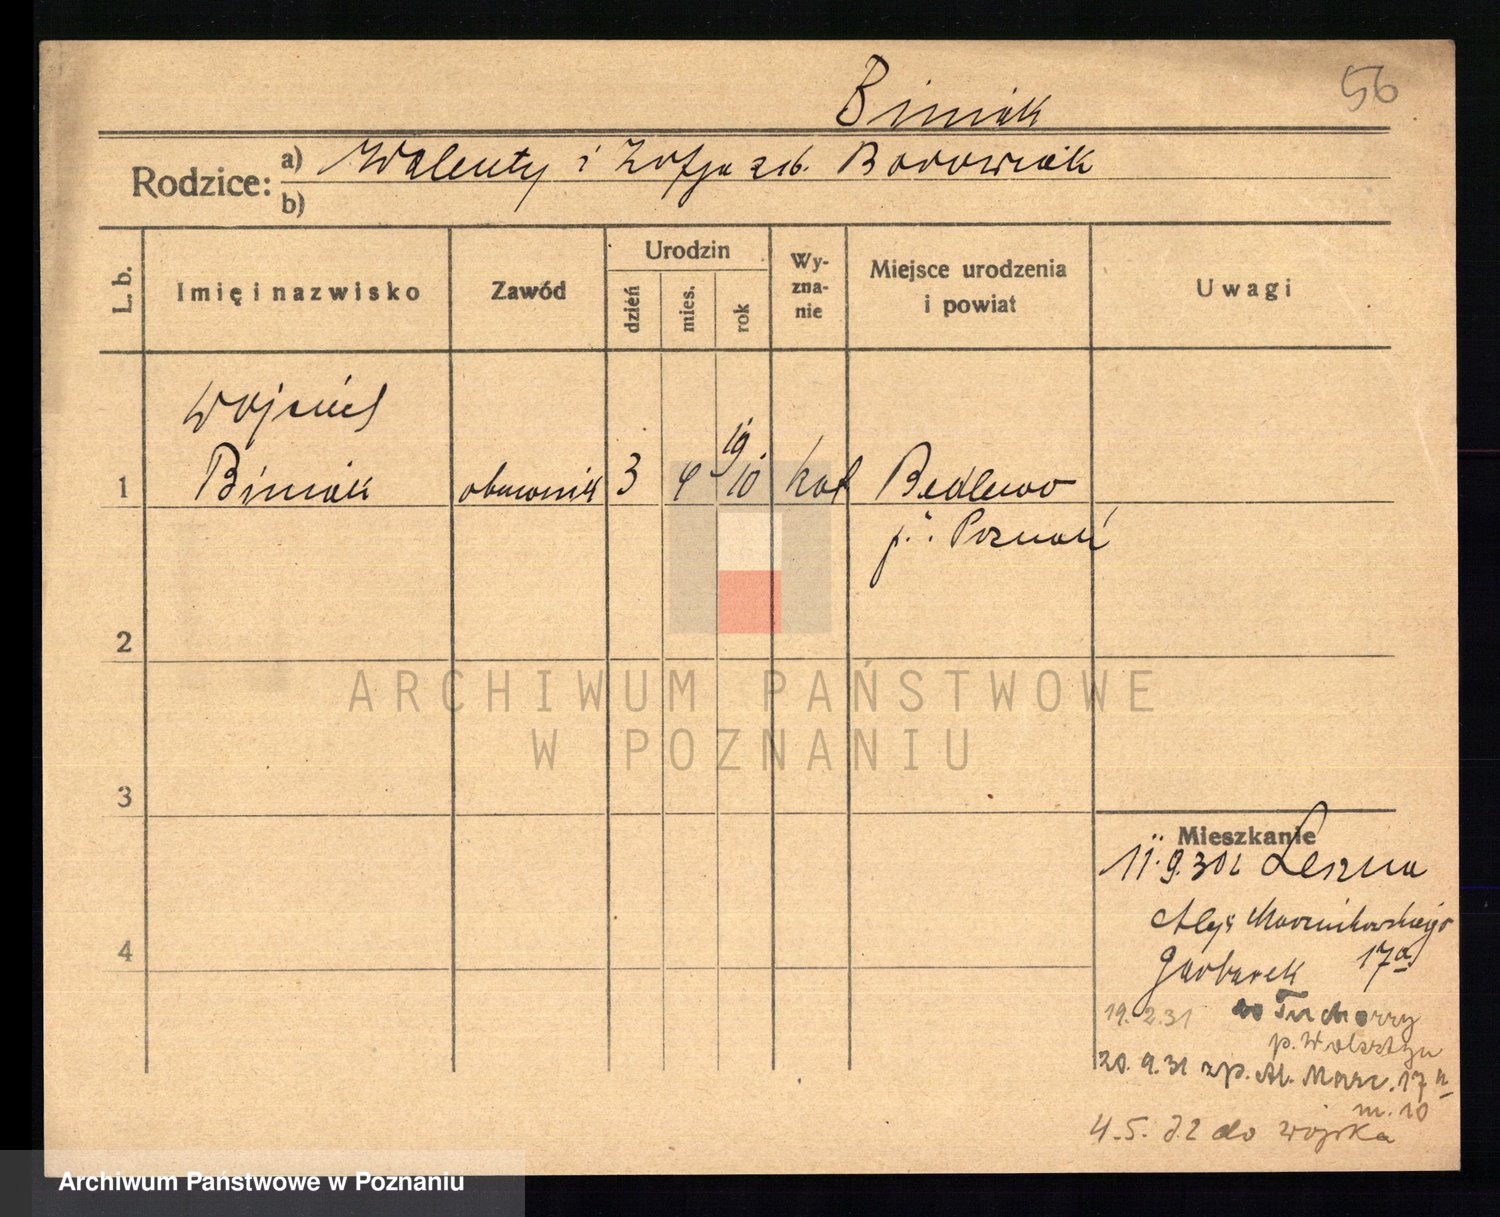 56
Biniak
Rodzice: a) Walenty i Zofja zib. Borowiak
b)
L. b. Imię i nazwisko Zawód Urodzin dzień mies. rok Wy-zna-nie Miejsce urodzenia i powiat Uwagi
Wojciech
1 Biniak obuwnik 3 4 19/10 kat Bedlewo
p. Poznań
2
ARCHIWUM PAŃSTWOWE
W POZNANIU
3
Mieszkanie
11.9.30 z Leszna
Aleje Marcinkowskiego
Garbarek 17a
19.2.31 do Tuchorzy
p. Wolsztyn
4
20.9.31 zp. Al. Marc. 17a
m. 10
4.5.32 do wojska
Archiwum Państwowe w Poznaniu